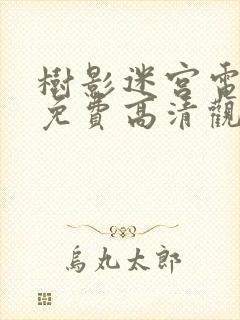 樹影迷宮電
免費高清觀
烏丸太郎